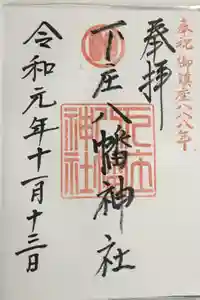 奉祝御鎮座八八八年
奉拝
下庄八幡神社
令和元年十一月十三日